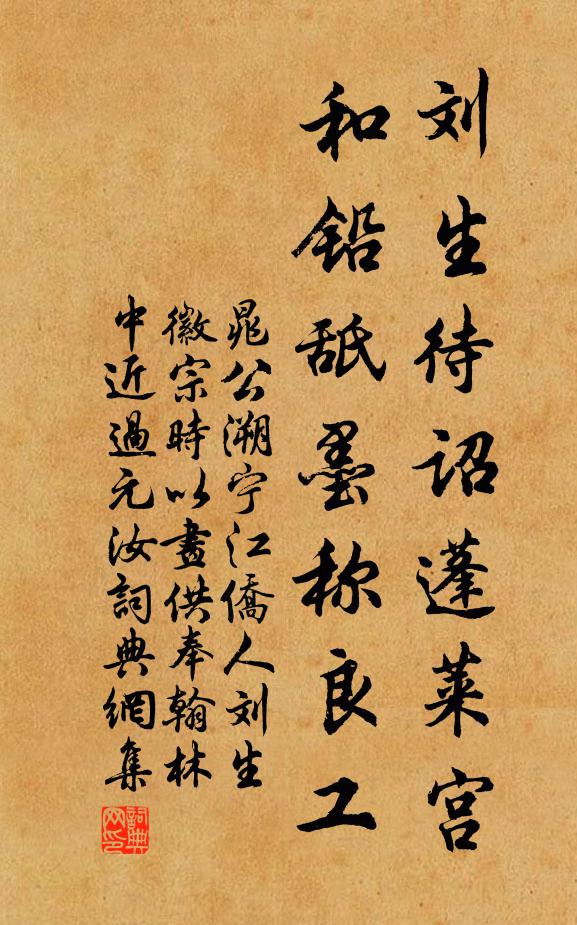 刘生待诏蓬莱宫
和铅舐墨称良工
晁公溯宁江僑人刘生
徽宗時以畫供奉翰林
中近過元汝詞典網集
詞典网印